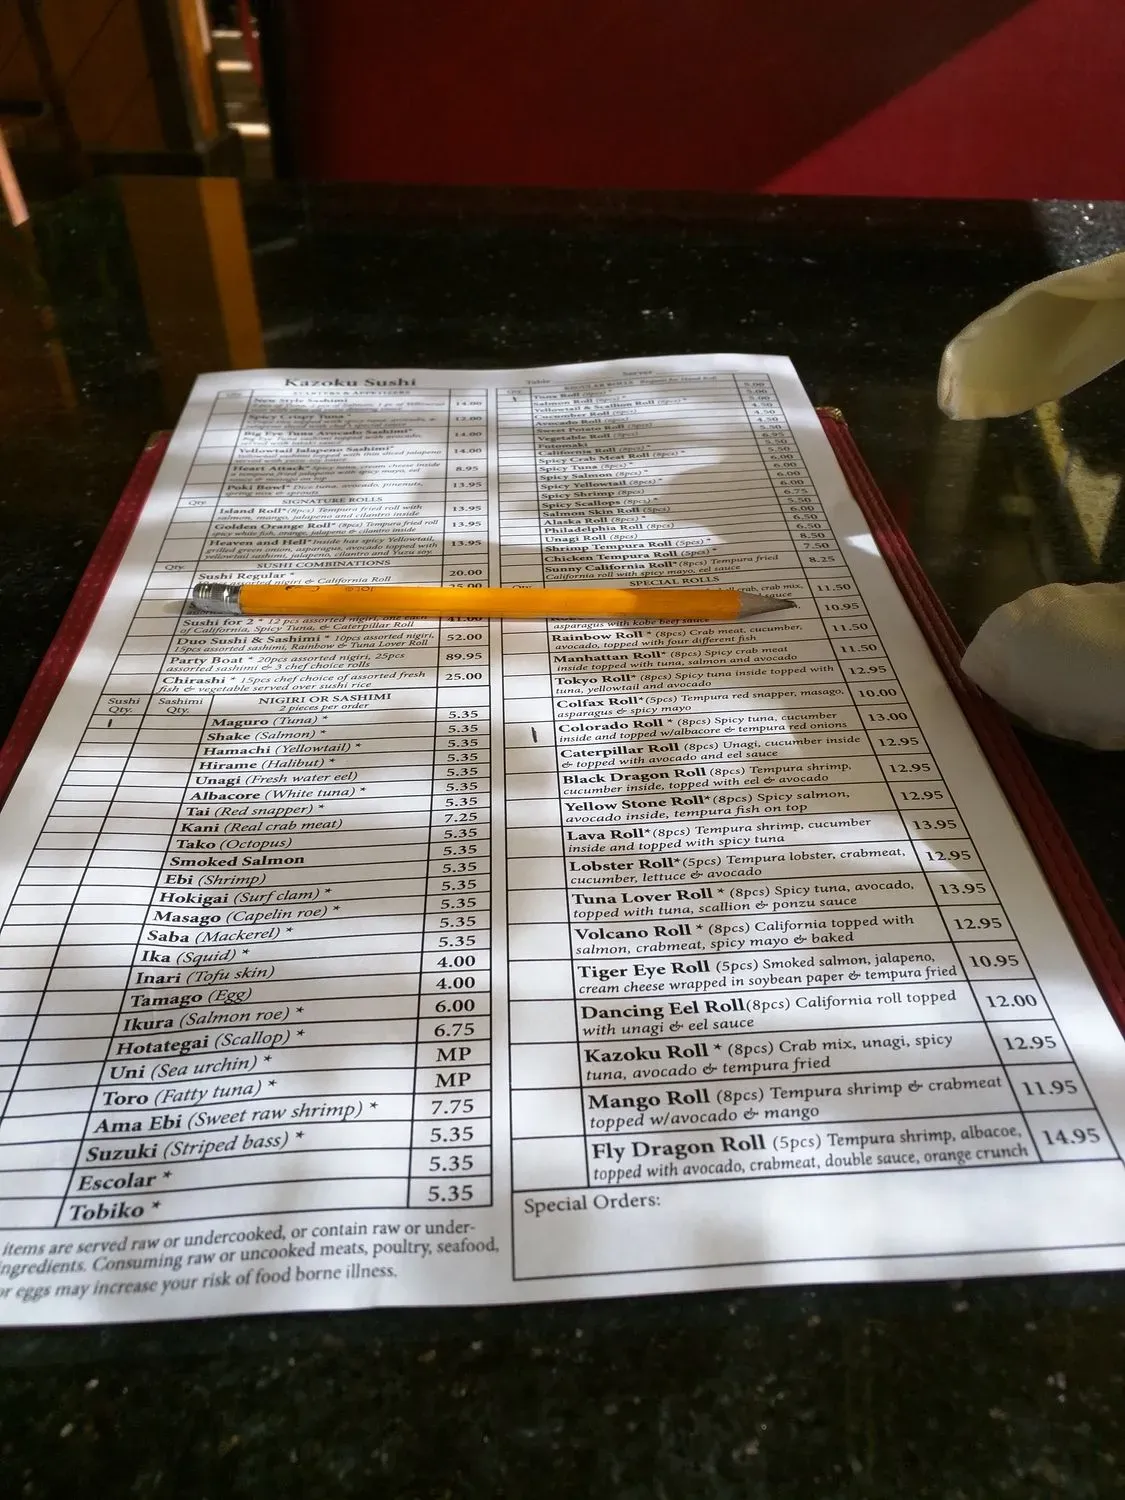 Kazoku Sushi
STARTERS & APPETIZERS
New Style Sashimi
14.00
Spicy Crispy Tuna *
12.00
Big Eye Tuna Avocado Sashimi*
Big Eye Tuna sashimi topped with avocado,
14.00
Yellowtail Jalapeno Sashimi*
Yellowtail sashimi topped with thin sliced jalapeno
14.00
Heart Attack* Spicy tuna, cream cheese inside
a tempura fried jalapeno with spicy mayo, eel
sauce & masago on top
8.95
Poki Bowl* Dice tuna, avocado, pinenuts,
spring mix & sprouts
13.95
Qty. SIGNATURE ROLLS
Island Roll*(8pcs) Tempura fried roll with
salmon, mango, jalapeno and cilantro inside
13.95
Golden Orange Roll* (8pc) Tempura fried roll
spicy white fish, orange, jalapeno & cilantro inside
13.95
Heaven and Hell* Inside has spicy Yellowtail,
grilled green onion, asparagus, avocado topped with
yellowtail sashimi, jalapeno, cilantro and Yuzu soy.
13.95
Qty. SUSHI COMBINATIONS
Sushi Regular *
assorted nigiri & California Roll
20.00
25.00
Sushi for 2 * 12 pcs assorted nigiri, one each
of California, Spicy Tuna, & Caterpillar Roll
41.00
Duo Sushi & Sashimi * 10pcs assorted nigiri,
15pcs assorted sashimi, Rainbow & Tuna Lover Roll
52.00
Party Boat * 20pcs assorted nigiri, 25pcs
assorted sashimi & 3 chef choice rolls
89.95
Chirashi * 15pcs chef choice of assorted fresh
fish & vegetable served over sushi rice
25.00
Sushi Qty. Sashimi Qty. NIGIRI OR SASHIMI
2 pieces per order
Maguro (Tuna) * 5.35
Shake (Salmon) * 5.35
Hamachi (Yellowtail) * 5.35
Hirame (Halibut) * 5.35
Unagi (Fresh water eel) 5.35
Albacore (White tuna) * 5.35
Tai (Red snapper) * 5.35
Kani (Real crab meat) 7.25
Tako (Octopus) 5.35
Smoked Salmon 5.35
Ebi (Shrimp) 5.35
Hokigai (Surf clam) * 5.35
Masago (Capelin roe) * 5.35
Saba (Mackerel) * 5.35
Ika (Squid) * 5.35
Inari (Tofu skin) 4.00
Tamago (Egg) 4.00
Ikura (Salmon roe) * 6.00
Hotategai (Scallop) * 6.75
Uni (Sea urchin) * MP
Toro (Fatty tuna) * MP
Ama Ebi (Sweet raw shrimp) * 7.75
Suzuki (Striped bass) * 5.35
Escolar * 5.35
Tobiko * 5.35
items are served raw or undercooked, or contain raw or under-
ingredients. Consuming raw or uncooked meats, poultry, seafood,
or eggs may increase your risk of food borne illness.
Table Server
REGULAR ROLLS Request for Hand Roll
Tuna Roll (6pcs) * 5.00
Salmon Roll (6pcs) * 5.00
Yellowtail & Scallion Roll (6pcs) * 5.00
Cucumber Roll (6pcs) 4.50
Avocado Roll (6pcs) 4.50
Sweet Potato Roll (6pcs) 5.50
Vegetable Roll (8pcs)
Futomaki 6.95
California Roll (8pcs) 5.50
Spicy Crab Meat Roll (8pcs) 5.50
Spicy Tuna (8pcs) * 6.00
Spicy Salmon (8pcs) * 6.00
Spicy Yellowtail (8pcs) * 6.00
Spicy Shrimp (8pcs) 6.00
Spicy Scallops (8pcs) * 6.75
Salmon Skin Roll (5pcs) 5.50
Alaska Roll (8pcs) * 6.00
Philadelphia Roll (8pcs) 6.50
Unagi Roll (8pcs) 6.50
Shrimp Tempura Roll (5pcs) * 8.50
Chicken Tempura Roll (5pcs) * 7.50
Sunny California Roll* (8pcs) Tempura fried
California roll with spicy mayo, eel sauce
8.25
SPECIAL ROLLS
crab, crab mix,
sauce
11.50
asparagus with kobe beef sauce
10.95
Rainbow Roll * (8pcs) Crab meat, cucumber,
avocado, topped with four different fish
11.50
Manhattan Roll* (8pcs) Spicy crab meat
inside topped with tuna, salmon and avocado
11.50
Tokyo Roll* (8pcs) Spicy tuna inside topped with
tuna, yellowtail and avocado
12.95
Colfax Roll*(5pcs) Tempura red snapper, masago,
asparagus & spicy mayo
10.00
Colorado Roll * (8pcs) Spicy tuna, cucumber
inside and topped w/albacore & tempura red onions
13.00
Caterpillar Roll (8pcs) Unagi, cucumber inside
& topped with avocado and eel sauce
12.95
Black Dragon Roll (8pcs) Tempura shrimp,
cucumber inside, topped with eel & avocado
12.95
Yellow Stone Roll*(8pcs) Spicy salmon,
avocado inside, tempura fish on top
12.95
Lava Roll*(8pcs) Tempura shrimp, cucumber
inside and topped with spicy tuna
13.95
Lobster Roll*(5pcs) Tempura lobster, crabmeat,
cucumber, lettuce & avocado
12.95
Tuna Lover Roll * (8pcs) Spicy tuna, avocado,
topped with tuna, scallion & ponzu sauce
13.95
Volcano Roll * (8pcs) California topped with
salmon, crabmeat, spicy mayo & baked
12.95
Tiger Eye Roll (5pcs) Smoked salmon, jalapeno,
cream cheese wrapped in soybean paper & tempura fried
10.95
Dancing Eel Roll(8pcs) California roll topped
with unagi & eel sauce
12.00
Kazoku Roll * (8pcs) Crab mix, unagi, spicy
tuna, avocado & tempura fried
12.95
Mango Roll (8pcs) Tempura shrimp & crabmeat
topped w/avocado & mango
11.95
Fly Dragon Roll (5pcs) Tempura shrimp, albacoe,
topped with avocado, crabmeat, double sauce, orange crunch
14.95
Special Orders: